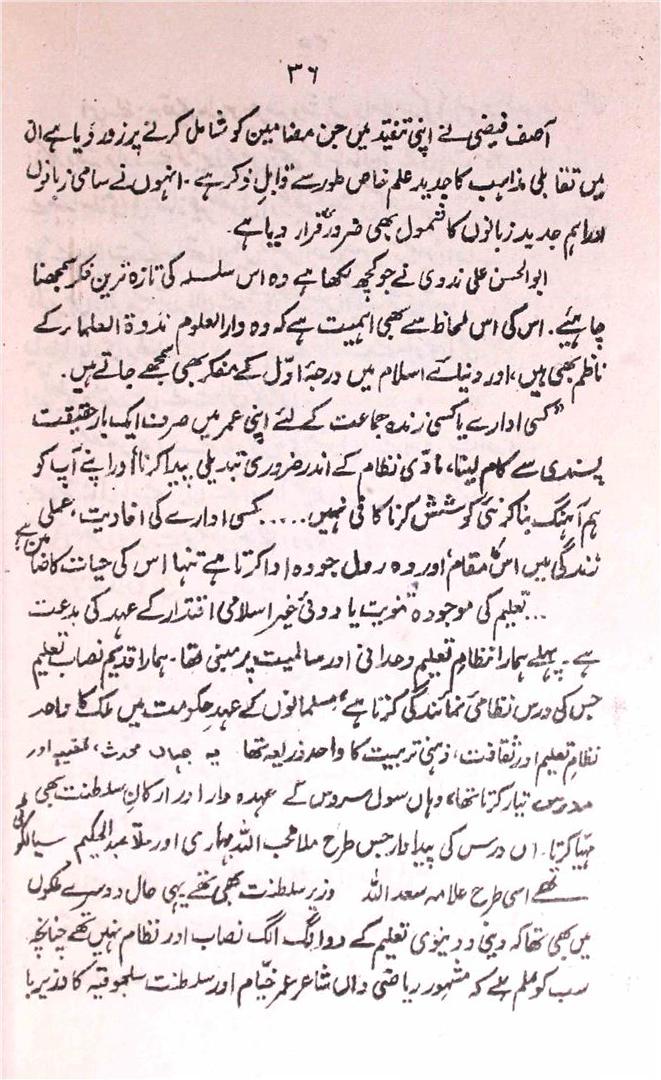 ۳۶
آصف فیضی نے اپنی تنقید میں جن مضامین کو شامل کرنے پر زور دیا ہے ان
میں تقابلی مذاہب کا جدید علم خاص طور سے قابلِ ذکر ہے۔ انہوں نے سامی زبانوں
اور اہم جدید زبانوں کا شمول بھی ضروری قرار دیا ہے۔
ابوالحسن علی ندوی نے جو کچھ لکھا ہے وہ اس سلسلہ کی تازہ ترین فکر سمجھنا
چاہیئے۔ اس کی اس لحاظ سے بھی اہمیت ہے کہ وہ دارالعلوم ندوۃ العلماء کے
ناظم بھی ہیں، اور دنیائے اسلام میں درجۂ اوّل کے مفکر بھی سمجھے جاتے ہیں۔
"کسی ادارے یا کسی زندہ جماعت کے لئے اپنی عمر میں صرف ایک بار حقیقت
پسندی سے کام لینا، مادّی نظام کے اندر ضروری تبدیلی پیدا کرنا اور اپنے آپ کو
ہم آہنگ بنا کر نئی کوشش کرنا کافی نہیں..... کسی ادارے کی افادیت، عملی
زندگی میں اس کا مقام اور وہ رول جو وہ ادا کرتا ہے تنہا اس کی حیات کا ضامن ہے؛
...تعلیم کی موجودہ ثنویت یا دوئی غیر اسلامی اقتدار کے عہد کی بدعت
ہے۔ پہلے ہمارا نظامِ تعلیم وحدانی اور سالمیت پر مبنی تھا۔ ہمارا قدیم نصاب تعلیم
جس کی درس نظامی نمائندگی کرتا ہے، مسلمانوں کے عہدِ حکومت میں ملک کا واحد
نظامِ تعلیم اور ثقافت، ذہنی تربیت کا واحد ذریعہ تھا یہ جہاں محدث، فقیہہ اور
مدرس تیار کرتا تھا، وہاں سول سروس کے عہدہ دار اور ارکانِ سلطنت بھی
مہیّا کرتا۔ اس درس کی پیداوار جس طرح ملا محب اللہ بہاری اور ملّا عبدالحکیم سیالکوٹی
تھے اسی طرح علامہ سعد اللہ وزیر سلطنت بھی تھے یہی حال دوسرے ملکوں
میں بھی تھا کہ دینی و دینوی تعلیم کے دو الگ الگ نصاب اور نظام نہیں تھے چنانچہ
سب کو علم ہے کہ مشہور ریاضی داں شاعر عمر خیّام اور سلطنت سلجوقیہ کا وزیر با